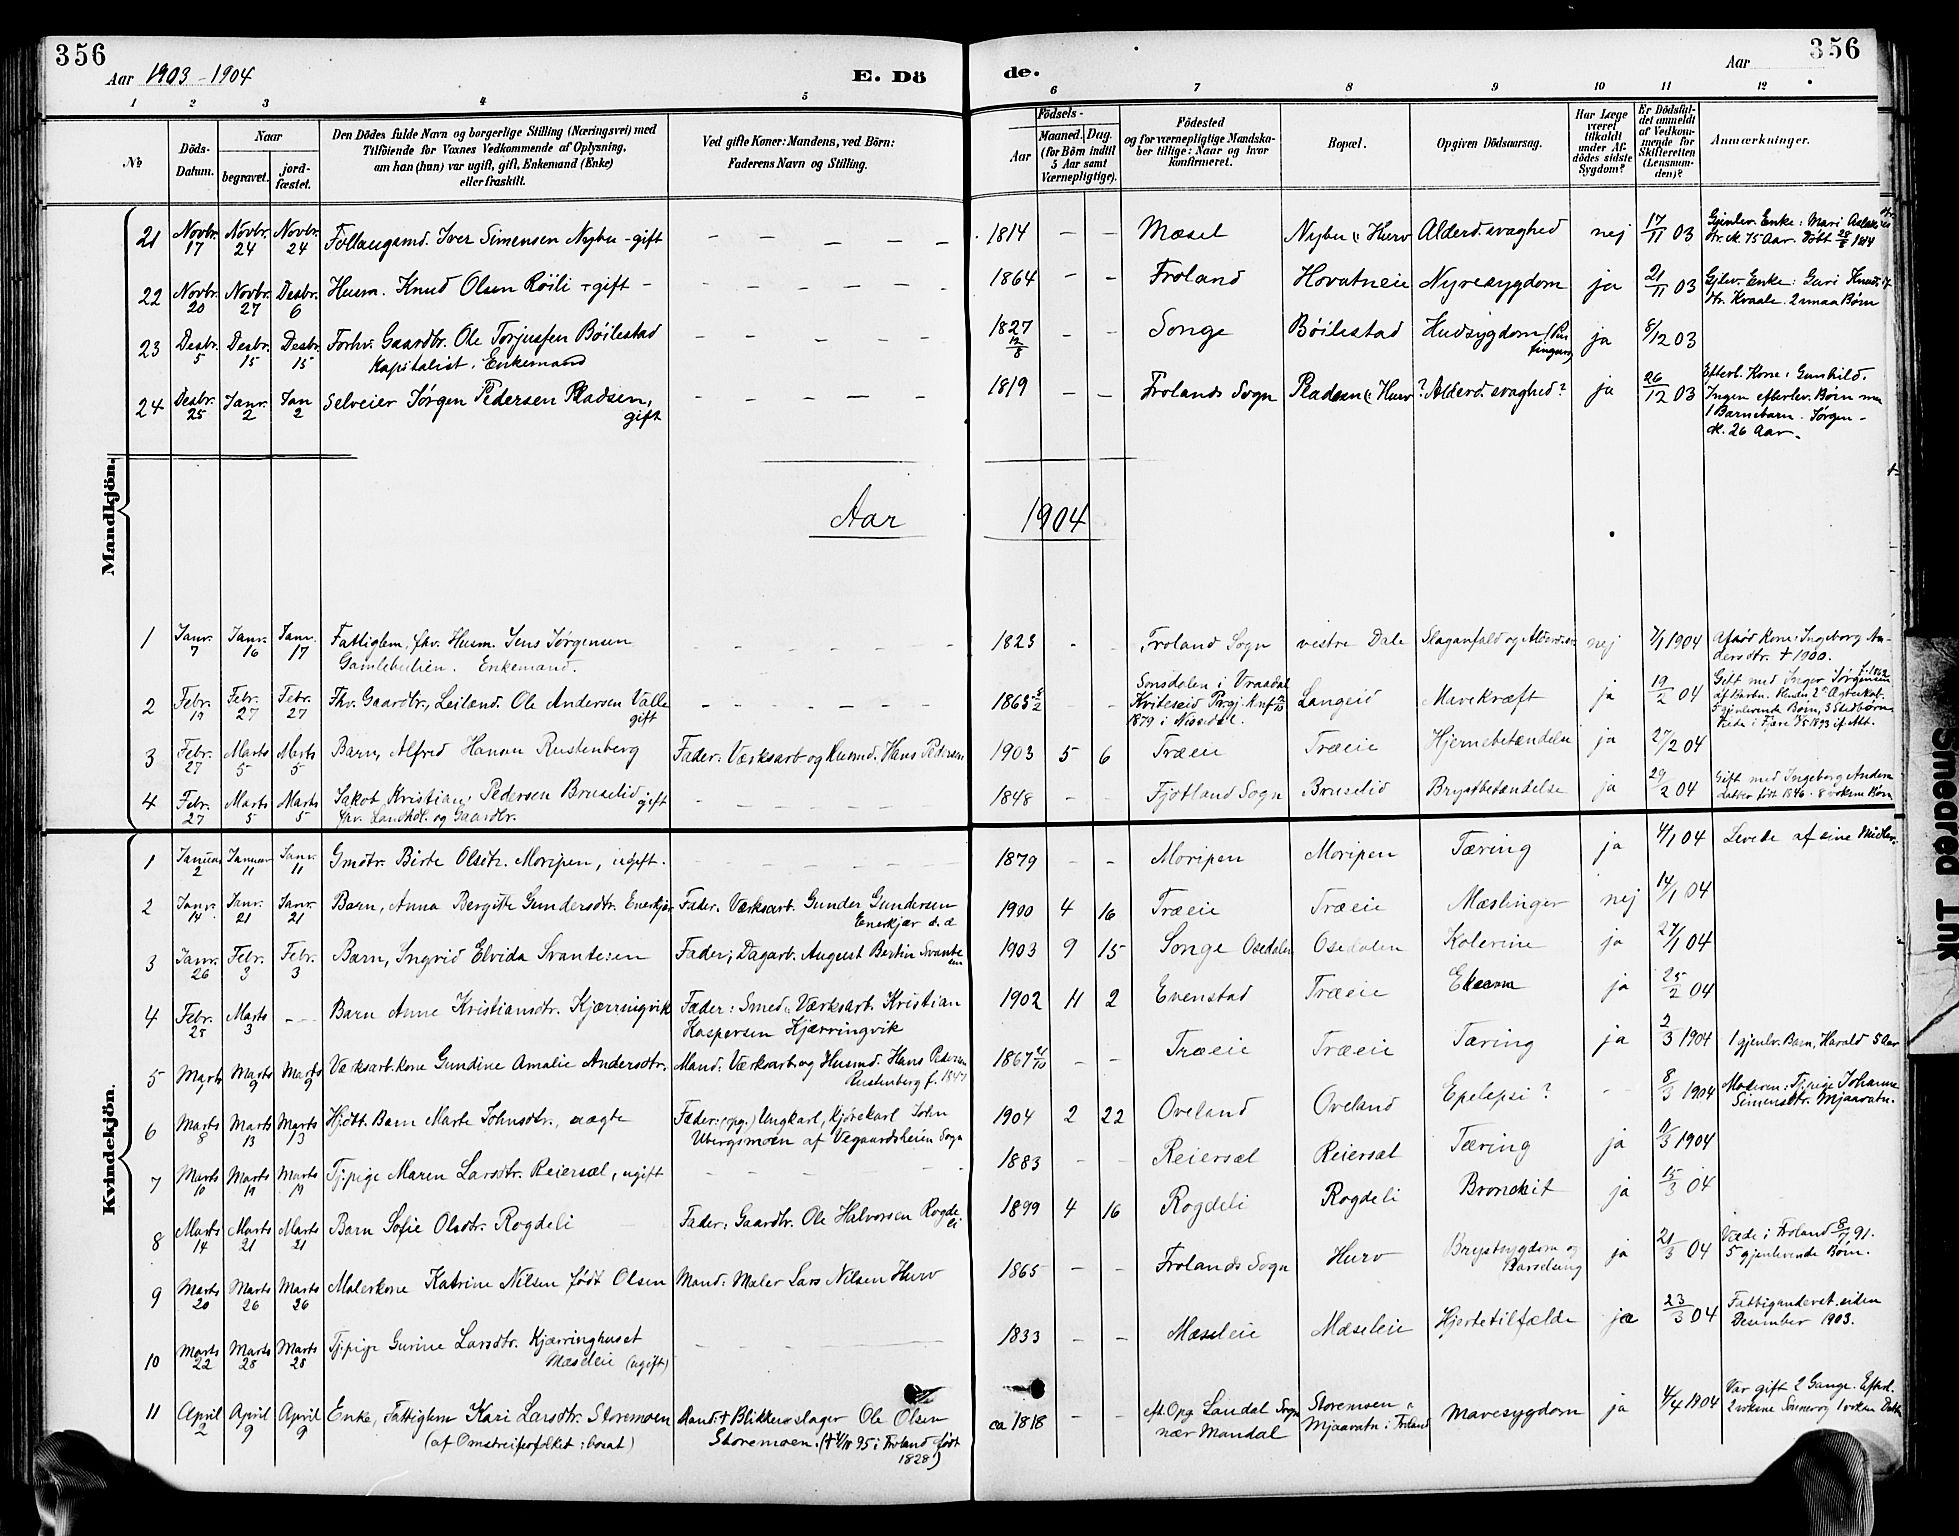 356
Aar 1903-1904
E. Dö
de.
Aar
356
1 2 3 4 5 6 7 8 9 10 11 12
No
Döds-Datum.
Naar
begravet.
jord-fæstet.
Den Dödes fulde Navn og borgerlige Stilling (Næringsvei) med
Tilföiende for Voxnes Vedkommende af Oplysning,
om han (hun) var ugift, gift, Enkemand (Enke)
eller fraskilt.
Ved gifte Koner: Mandens, ved Börn:
Faderens Navn og Stilling.
Födsels-
Aar
Maaned. Dag.
(for Börn indtil
5 Aar samt
Værnepligtige).
Födested
og for værnepligtige Mandska-
ber tillige: Naar og hvor
konfirmeret.
Bopæl.
Opgiven Dödsaarsag.
Har Læge
været
tilkaldt
under Af-
dödes sidste
Sygdom?
Er Dödsfal-
det anmeldt
af Vedkom-
mende for
Skifteretten
(Lensman-
den)?
Anmærkninger.
Mandkjön.
21 Novbr. 17 Novbr. 24 Novbr. 24 Iver Simensen Nybu - gift 1814 Mæsel Nybu i Hurv Alderd.svaghed nej 17/11 03 Gjenlev. Enke: Mari
75 Aar. Født
22 Novbr. 20 Novbr. 27 Desbr. 6 Husm. Knud Olsen Röili - gift - 1864 Froland Hovatneie Nyresygdom ja 21/11 03 Gjlev. Enke: Guri
Kvaale. 2 smaa Børn
23 Desbr. 5 Desbr. 15 Desbr. 15 Forhv. Gaardbr. Ole Torjussen Böilestad 1827 12/8 Songe Böilestad Hudsygdom ja 8/12 03
Kapitalist. Enkemand
24 Desbr. 25 Janr. 2 Jan 2 Selveier Jørgen Pedersen Pladsen, gift 1819 Frolands Sogn Pladsen i Hurv ? Alderd.svaghed? ja 26/12 03 Efterl. Kone: Gunhild.
Ingen efterlev. Børn men
1 Barnebarn. Jørgen -
26 Aar.
Aar 1904
1 Janr. 7 Janr. 16 Janr. 17 Fattiglem, fhv. Husm. Jens Jørgensen 1823 Froland Sogn vestre Dale Slaganfald og nej 7/1 1904 Afdød Kone: Ingeborg An-
Gamlebulien. Enkemand.
dersdtr. † 1900.
2 Febr. 19 Febr. 27 Febr. 27 Fhv. Gaardbr., Leilænd. Ole Andersen Valle gift 1865 Sonsdalen i Vraadal Langeid Mavekræft ja 19/2 04 Gift med Inger Jørgensen
Kviteseid Prgj. Knf
1879 i Nissedal.
5 gjenlevende Børn, 3 Stedbørn
3 Febr. 27 Marts 5 Marts 5 Barn, Alfred Hansen Rustenberg Fader: Værksarb og Husmd. Hans Pedersen 1903 5 6 Træeie Træeie Hjernebetændelse ja 27/2 04
4 Febr. 27 Marts 5 Marts 5 Jakob Kristian Pedersen Bruselid gift 1848 Fjotland Sogn Bruselid Brystbetændelse ja 29/2 04 Gift med Ingeborg Anders
fhv. Landhdl. og Gaardbr.
datter født 1846. 8 voksne Børn
Kvindekjön.
1 Januar 2 Januar 11 Janr. 11 Gmdtr. Birte Olsdtr. Moripen, ugift. 1879 Moripen Moripen Tæring ja 4/1 04 Levede af sine Midler.
2 Janr. 14 Janr. 21 Janr. 21 Barn, Anna Bergitte Gundersdtr. Enerkjær Fader: Værksarb. Gunder Gundersen 1900 4 16 Træeie Træeie Mæslinger nej 14/1 04
Enerkjær
3 Janr. 26 Febr. 3 Febr. 3 Barn, Ingrid Elvida Svantesen Fader: Dagarb. August Bertin Svantesen 1903 9 15 Songe Osedalen Osedalen Kolerine ja 27/1 04
4 Febr. 25 Marts 3 Barn Anne Kristiansdtr. Kjærringvik Fader: Smed, Værksarb. Kristian 1902 11 2 Evenstad Træeie ja 25/2 04
Kaspersen Kjærringvik
5 Marts Marts 9 Marts 9 Værksarb.kone Gundine Amalie Andersdtr. Mand: Værksarb og Husmd. Hans Pedersen 1867 Træeie Træeie Tæring ja 2/3 1904 1 gjenlv. Barn, Harald 5 Aar
Rustenberg f. 1847
6 Marts 8 Marts 13 Marts 13 Hjdt. Barn Marte Johnsdtr., uægte Fader: (opg.) Ungkarl, Kjørekarl John 1904 2 22 Oveland Oveland Epelepsi? 8/3 1904 Moderen: Tj.pige Johanne
Ubergsmoen af Vegaardsheien Sogn
Simensdtr. Mjaavatn.
7 Marts 10 Marts 19 Marts 19 Tj.pige Maren Larsdtr. Reiersøl, ugift 1883 Reiersøl Reiersøl Tæring ja 11/3 1904
8 Marts 14 Marts 21 Marts 21 Barn Sofie Olsdtr. Rogdeli Fader: Gaardbr. Ole Halvorsen Rogdeli 1899 4 16 Rogdeli Rogdeli Bronchit ja 15/3 04
9 Marts 20 Marts 26 Marts 26 Malerkone Katrine Nilsen født Olsen Mand: Maler Lars Nilsen Hurv 1865 Frolands Sogn Hurv Brystsygdom og ja 21/3 04 Viede i Froland 8/7 91.
Barselseng
5 gjenlevende Børn.
10 Marts 22 Marts 28 Marts 28 Tj.pige Gurine Larsdtr. Kjærringhuset 1833 Mæseleie Mæseleie Hjertetilfælde ja 23/3 04 Fattigunderst. siden
Mæseleie (ugift)
Desember 1903.
11 April 2 April 9 April 9 Enke, Fattiglem Kari Larsdtr. Storemoen Mand: † Blikkenslager Ole Olsen ca 1818 eft. Opg. Landal Sogn Storemoen i Mavesygdom ja 4/4 1904 Var gift 2 Gange. Efterl.
(af Omstreiferfolket: bosat) Storemoen. 95 i Froland født nær Mandal Mjaavatn i Froland 2 voksne Sønner og 1 voksen Datt
1828)
Smeared Ink